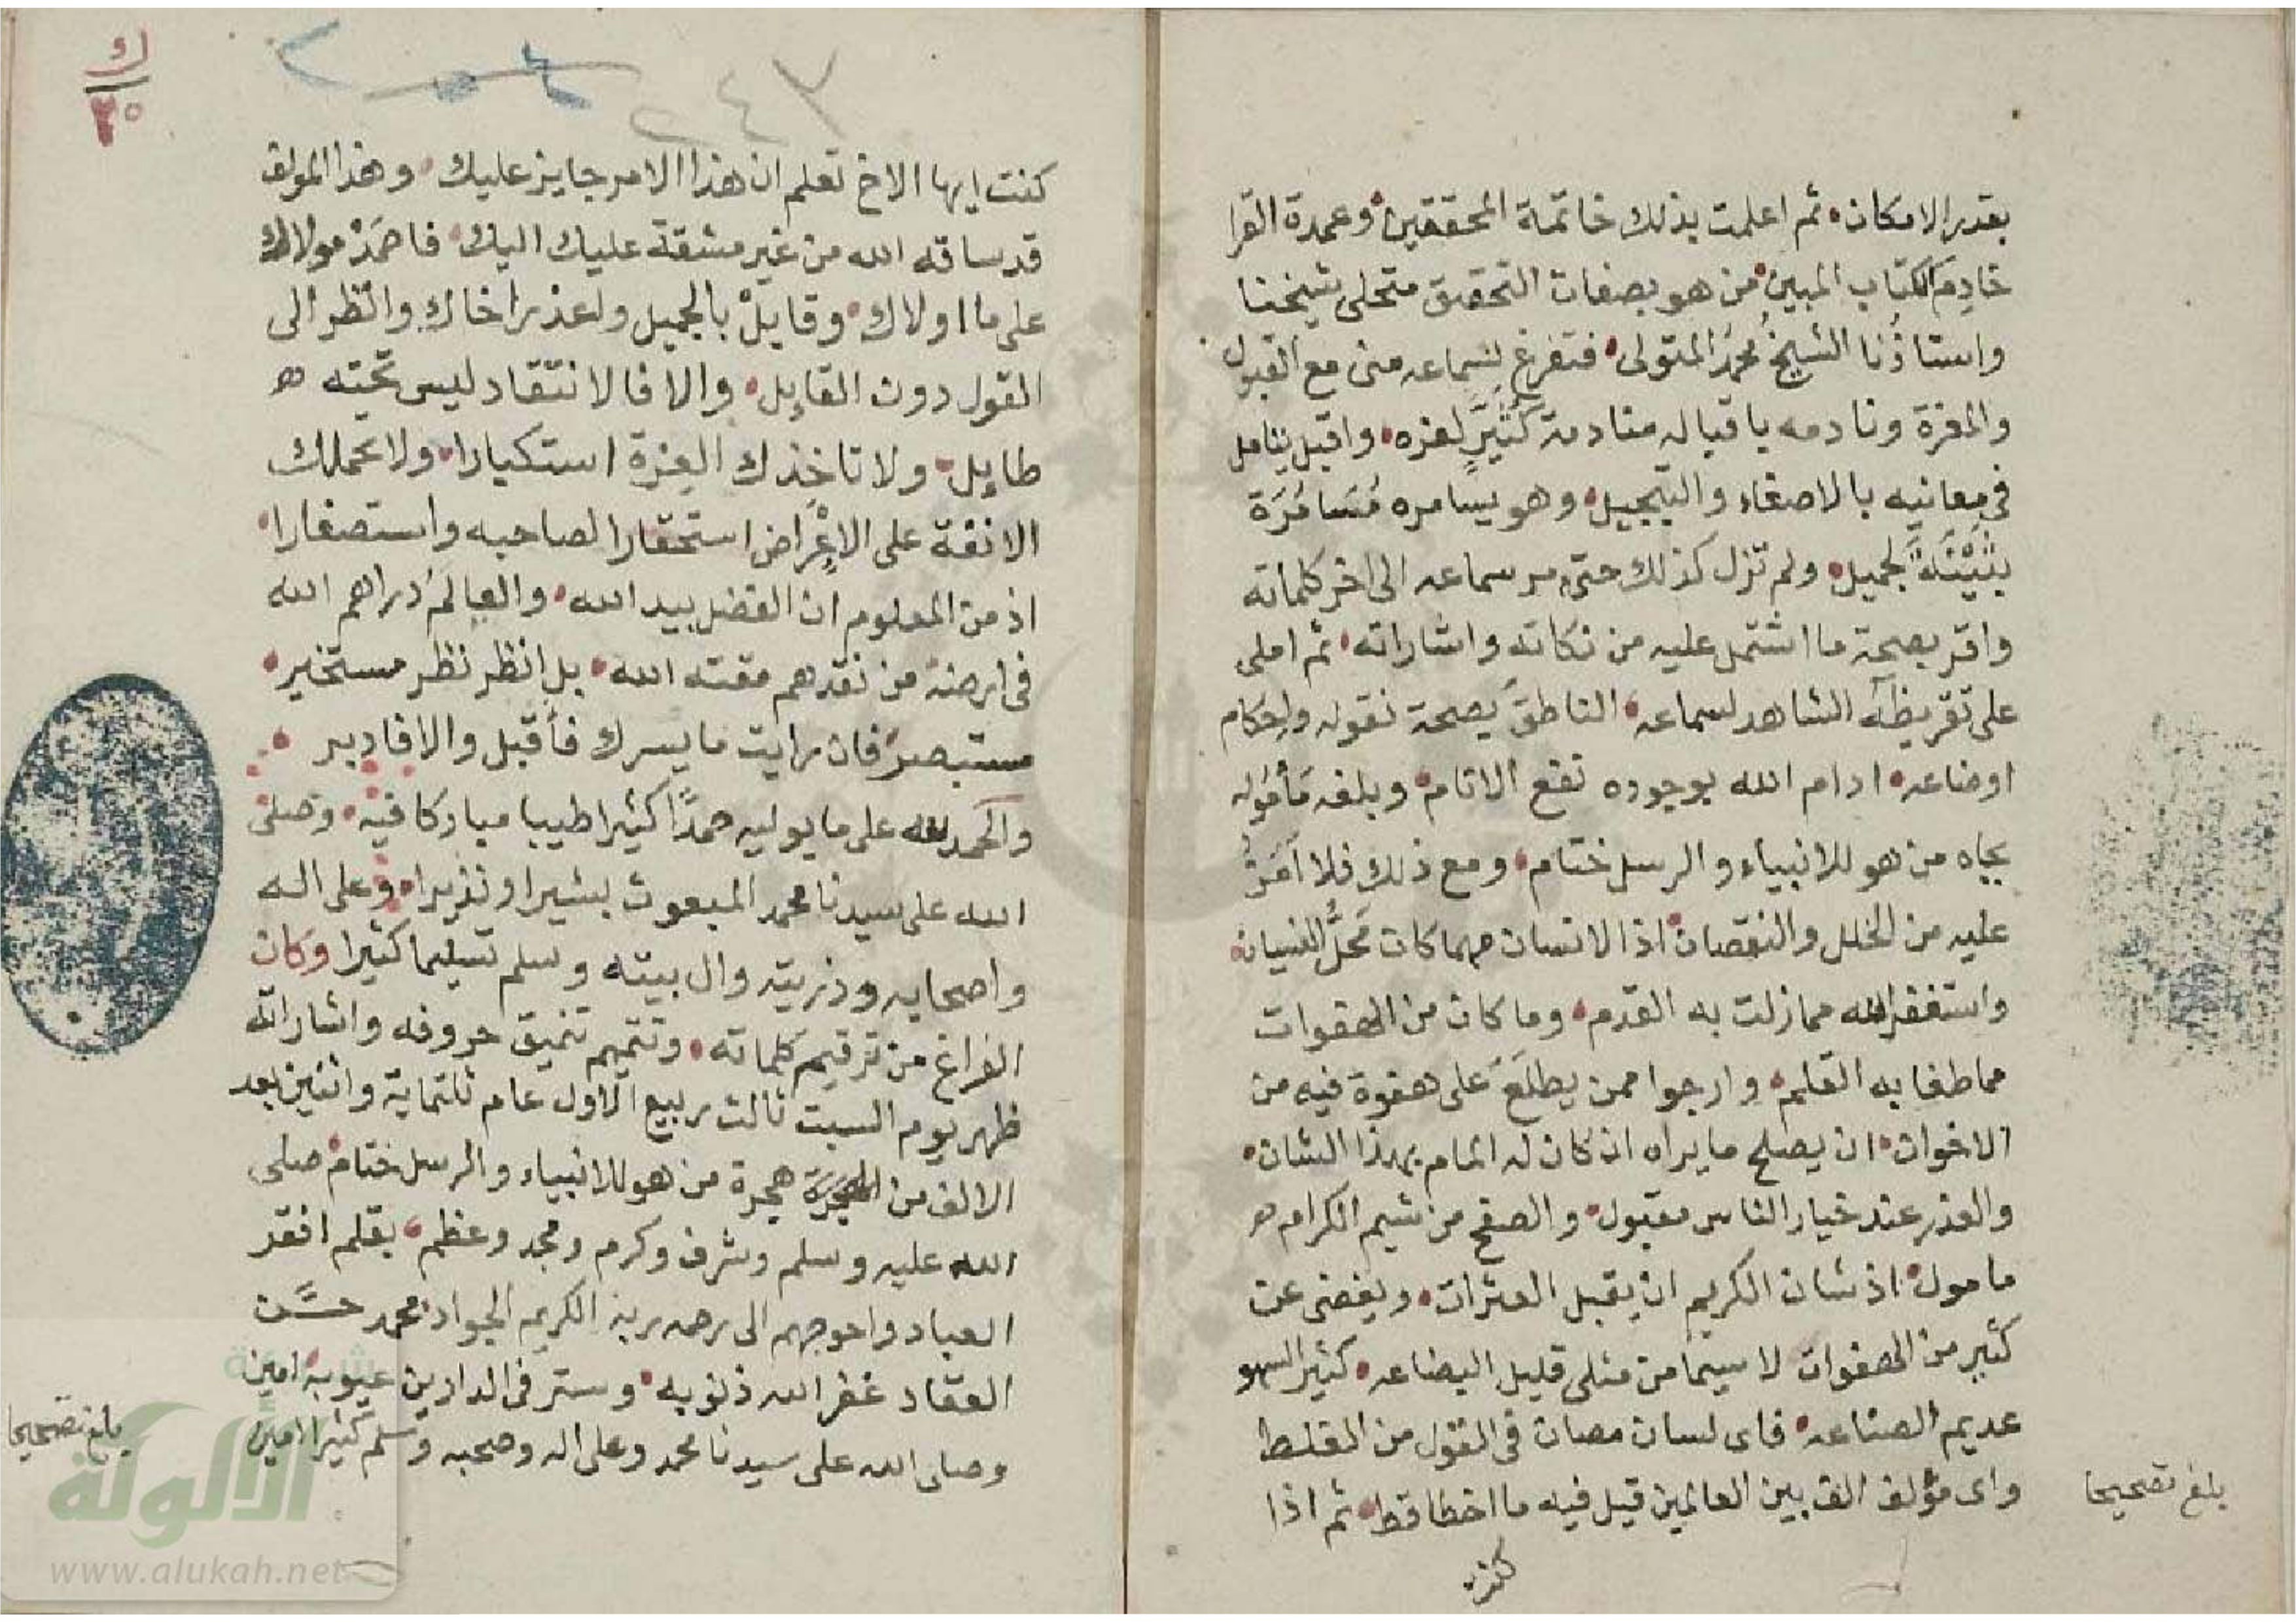 بقدر الامكان • ثم اعلمت بذلك خاتمة المحققين • وعمدة القرا
خادم الكتاب المبين • من هو بصفات التحقيق متحلى شيخنا
واستاذُنا الشيخُ محمدُ المتولى • فتفرغ لسماعه منى مع القبول
والمعزة ونادمه باقباله منادمة كُثَيِّرٍ لعزه • واقبل يتامل
فى معانيه بالاصغاء والتبجيل • وهو يسامره مُسَامَرَة
بُثَيْنَةَ لجميل • ولم تزل كذلك حتى مر سماعه الى اخر كلماته
واقر بصحة ما اشتمل عليه من نكاته واشاراته • ثم املى
على تقريظه الشاهد لسماعه • الناطق بصحة نقوله واحكام
اوضاعه • ادام الله بوجوده نفع الانام • وبلغه مَأمُوله
بجاه من هو للانبياء والرسل ختام • ومع ذلك فلا آمَنُ
عليه من الخلل والنقصان • اذ الانسان مهما كان مَحلُّ النسيان •
واستغفر الله مما زلت به القدم • وما كان من الهفوات
مما طغا به القلم • وارجوا ممن يطلع على هفوة فيه من
الاخوان • ان يصلح ما يراه ان كان له المام بهذا الشان •
والعذر عند خيار الناس مقبول • والصفح من شيم الكرام ه
مامول • اذ شان الكريم ان يقبل العثرات • ويغضى عن
كثير من الهفوات لا سيما من مثلى قليل البضاعه • كثير السهو
عديم الصناعه • فاى لسان مصان فى القول من الغلط
واى مؤلف الف بين العالمين قيل فيه ما اخطا قط • ثم اذا
بلغ تصحيحا
كنت
ك
٢٠
٢٤٣
كنت ايها الاخ تعلم ان هذا الامر جايز عليك • وهذا المولف
قد ساقه الله من غير مشقة عليك اليك • فاحمَدْ مولاك
على ما اولاك • وقابِلْ بالجميل واعذر اخاك وانظر الى
القول دون القايل • والا فالانتقاد ليس تحته ه
طايل • ولا تاخذك العزة استكبارا • ولا تحملك
الانفة على الاعْراض استحقارا لصاحبه واستصغارا •
اذ من المعلوم ان الفضل بيد الله • والعالم دراهم الله
فى ارضه من نقدهم مقته الله • بل انظر نظر مستخير •
مستبصر فان رايت ما يسرك فأقبل والا فادبر •
والحمد لله على ما يوليه حمدًا كثيرا طيبا مباركا فيه • وصلى
الله على سيدنا محمد المبعوث بشيرا ونذيرا • وعلى اله
واصحابه وذريته وال بيته وسلم تسليما كثيرا وكان
الفراغ من ترقيم كلماته • وتتميم تنميق حروفه واشاراته
ظهر يوم السبت ثالث ربيع الاول عام ثلثماية واثنين بعد
الالف من الهجرة هجرة من هو للانبياء والرسل ختام صلى
الله عليه وسلم وشرف وكرم ومجد وعظم • بقلم افقر
العباد واحوجهم الى رحمه ربه الكريم الجواد محمد حسن
العقاد غفر الله ذنوبه • وستر فى الدارين عيوبه امين
وصلى الله على سيدنا محمد وعلى اله وصحبه وسلم كثيرا امين
بلغ تصحيحا
شبكة
الألوكة
www.alukah.net